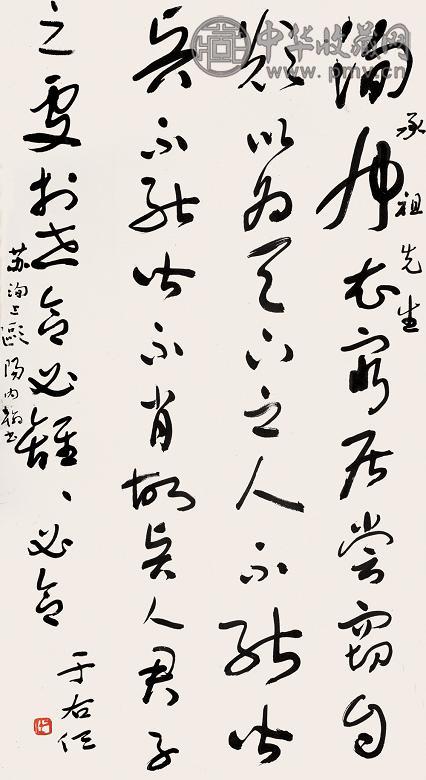 中华收藏网
承祖先生
洵布衣窮居嘗竊自
歎以為天下之人不能皆
賢不能皆不肖故賢人君子
之處於世合必離、必合
蘇洵上歐陽内翰書
于右任